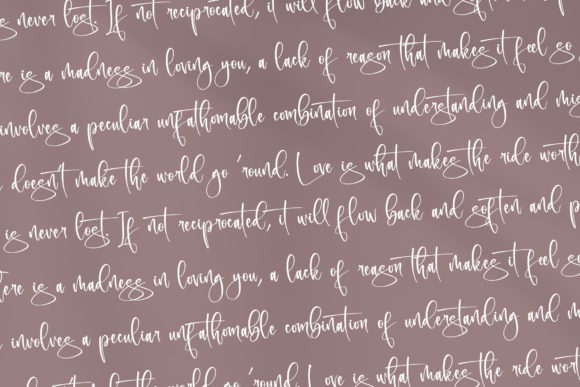 is never lost. If not reciprocated, it will flow back and soften
ere is a madness in loving you, a lack of reason that makes it feel so
involves a peculiar unfathomable combination of understanding and mis
doesn't make the world go 'round. Love is what makes the ride worth
is never lost. If not reciprocated, it will flow back and soften and p
ere is a madness in loving you, a lack of reason that makes it feel so
involves a peculiar unfathomable combination of understanding and m
doesn't make the world go 'round. Love is what makes the ride wort